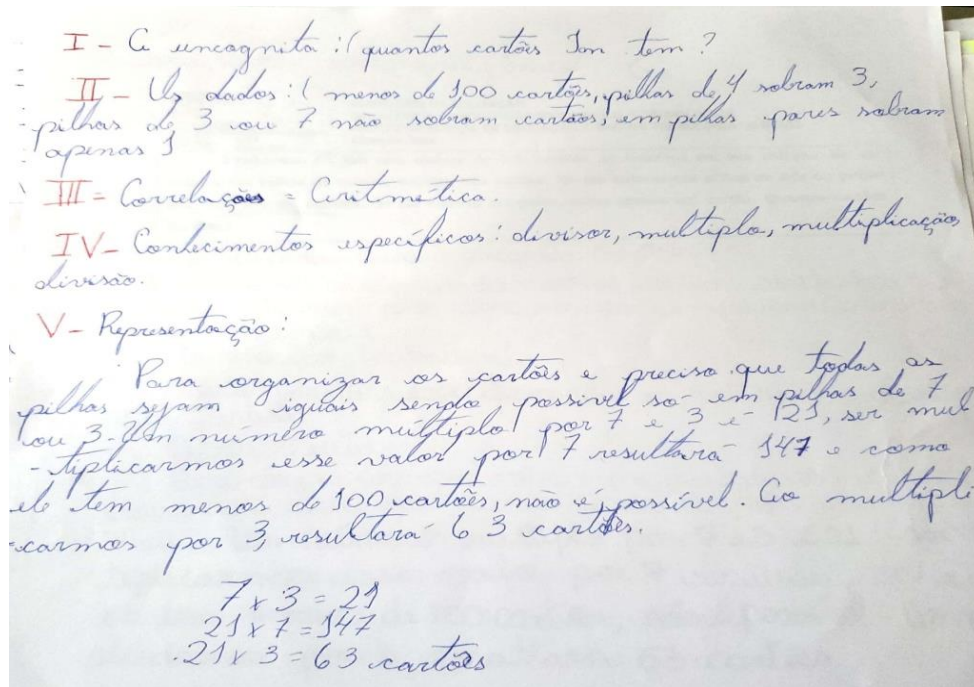 I - A uncognita :( quantos cartões Im tem ?
II - Us dados : ( menos de 100 cartões, pilhas de 4 sobram 3,
pilhas de 3 ou 7 não sobram cartões, em pilhas pares sobram
apenas 1
III = Correlações = Aritmética.
IV - Conhecimentos específicos: divisor, multiplo, multiplicação,
divisão.
V - Representação:
Para organizar os cartões e preciso que todas as
pilhas sejam iguais sendo possivel só em pilhas de 7
ou 3. Um número múltiplo por 7 e 3 é 21, ser mul
-tiplicarmos esse valor por 7 resultará 147 e como
ele tem menos de 100 cartões, não é possível. Ao multipli
-carmos por 3, resultará 63 cartões.
7 x 3 = 21
21 x 7 = 147
.21 x 3 = 63 cartões